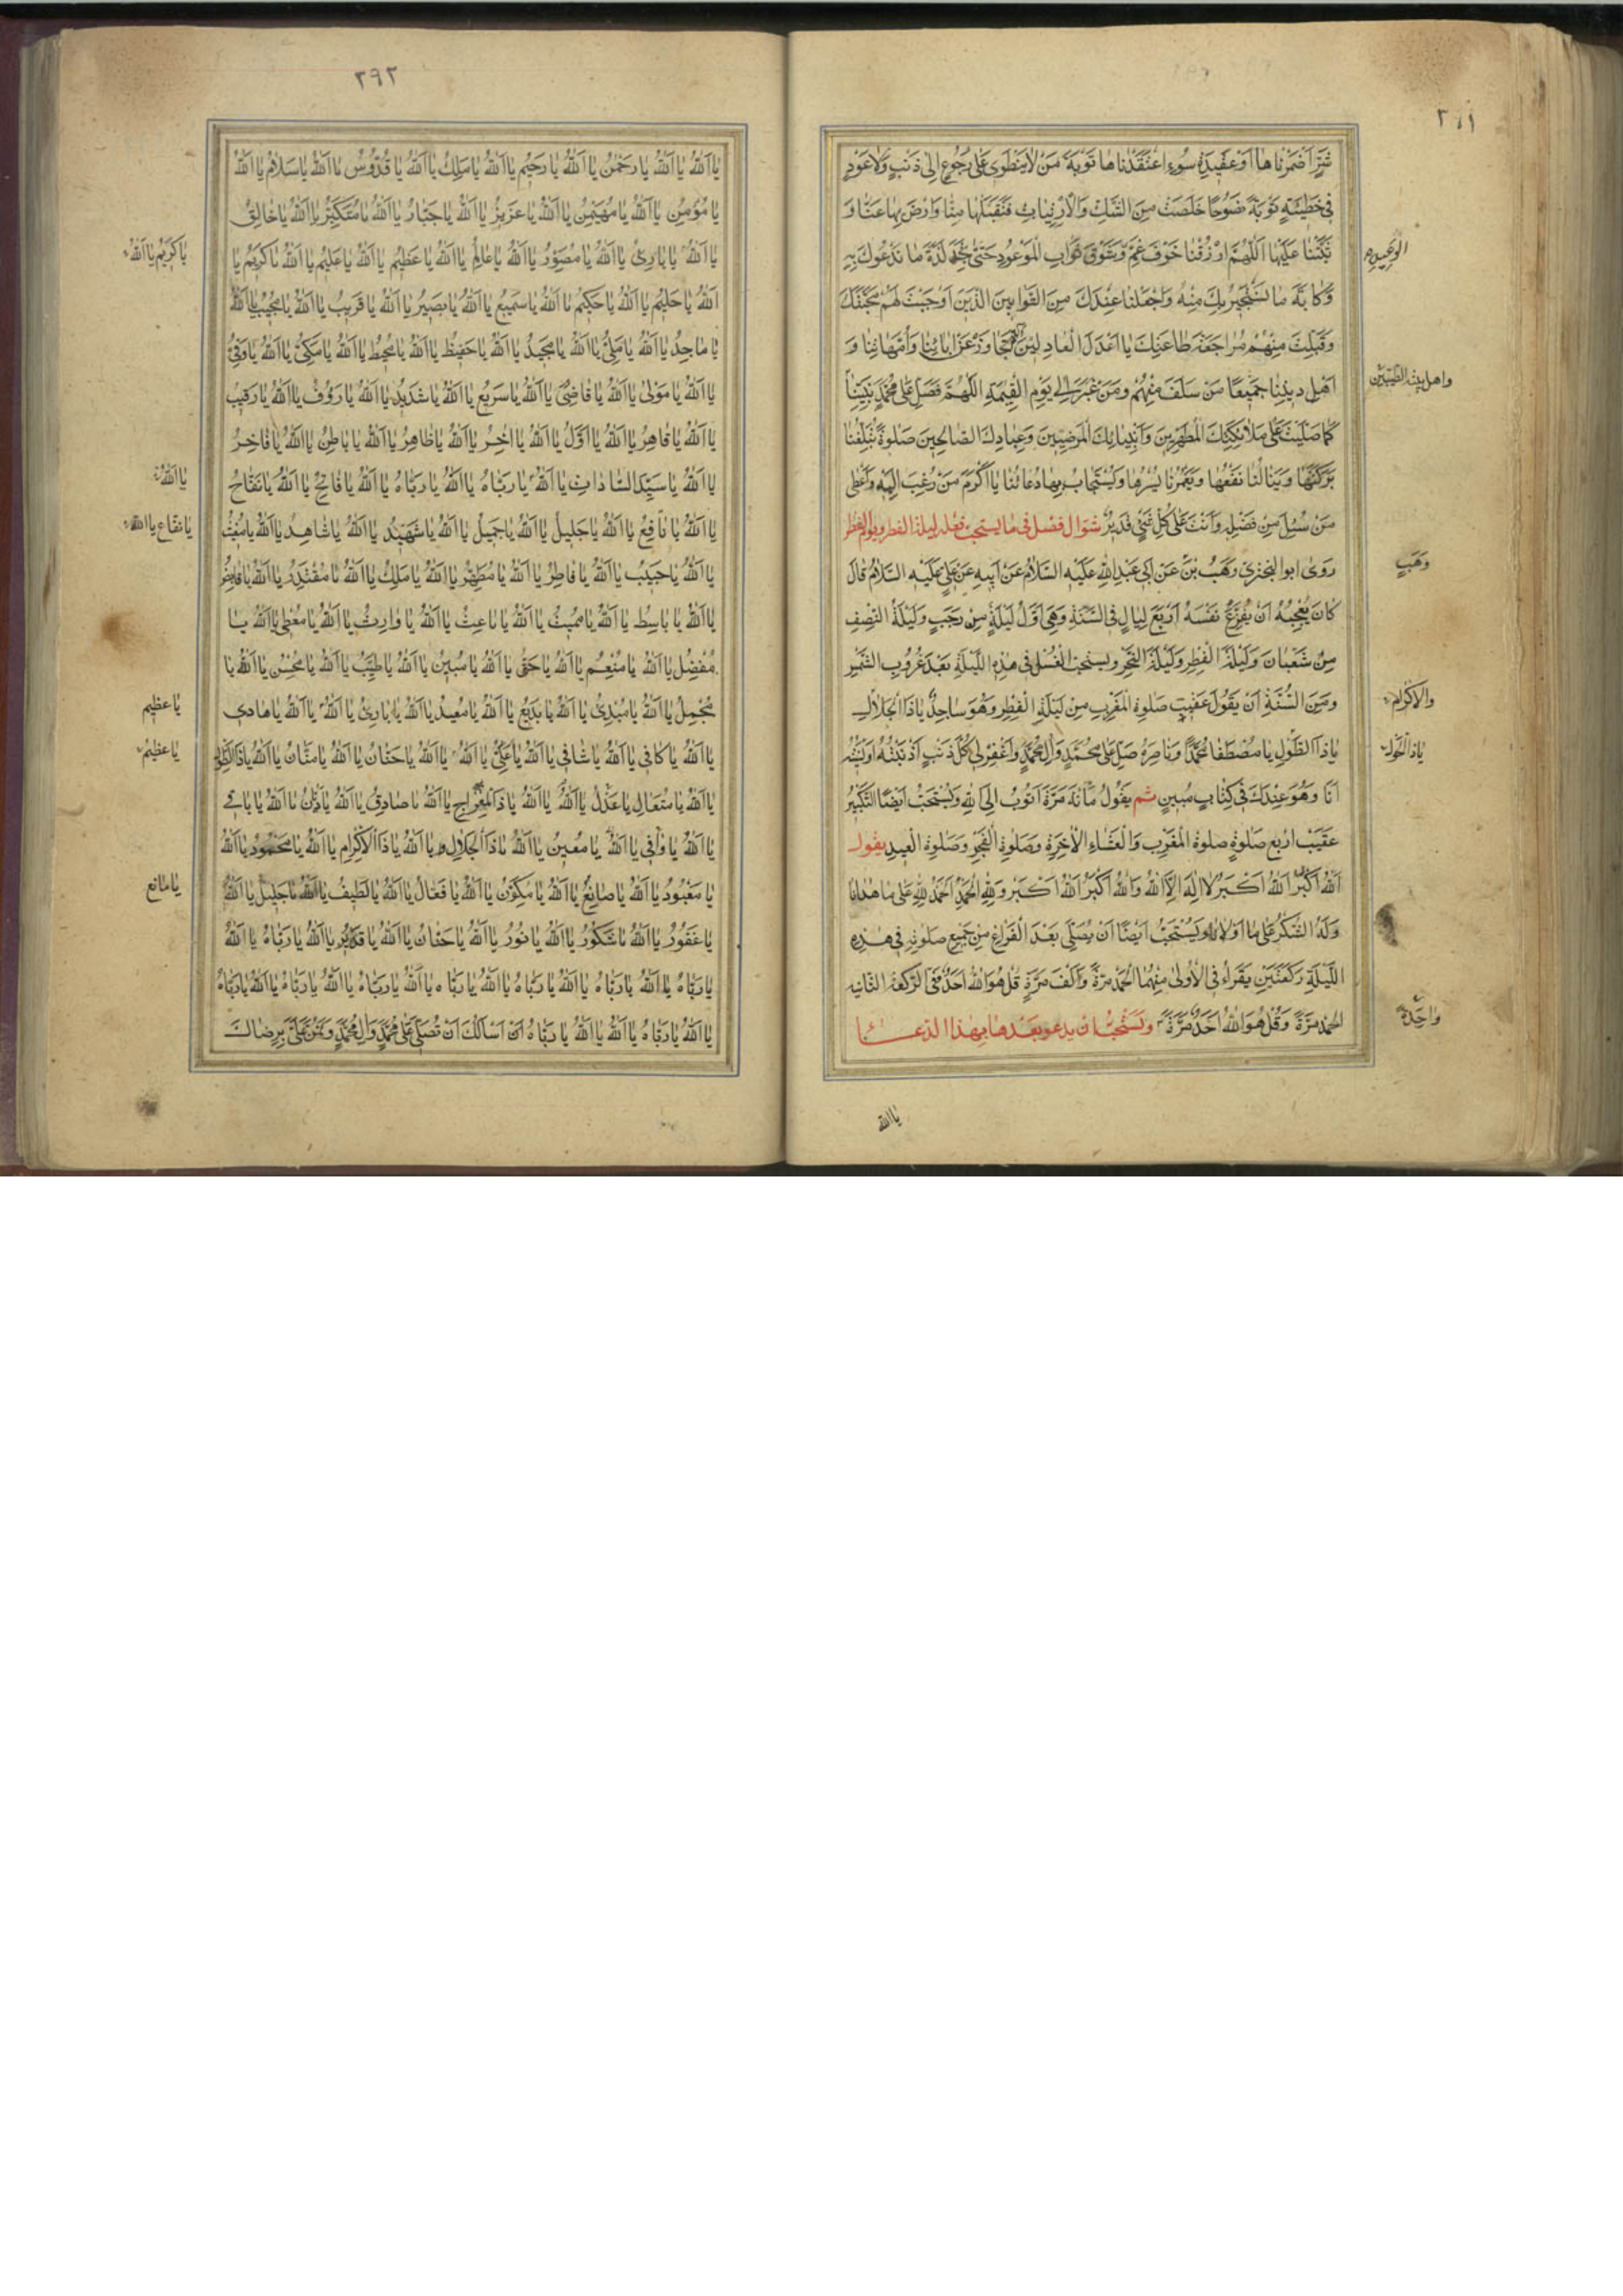 شَرٍّ اَضْمَرْناها اَوْ عَقيدَةِ سُوءٍ اعْتَقَدْناها تَوْبَةَ مَنْ لا يَنْطَوي عَلى رُجُوعٍ اِلى ذَنْبٍ وَلا عَوْدٍ
في خَطيئَةٍ تَوْبَةً نَصُوحًا خَلَصَتْ مِنَ الشَّكِّ وَالْاِرْتِيابِ فَتَقَبَّلْها مِنّا وَارْضَ بِها عَنّا وَ
ثَبِّتْنا عَلَيْها اَللّهُمَّ ارْزُقْنا خَوْفَ غَمِّ وَشَوْقَ ثَوابِ الْمَوْعُودِ حَتّى نَجِدَ لَذَّةَ ما نَدْعُوكَ بِهِ
الوَعيدِ
وَكَابَةَ ما نَسْتَجيرُ بِكَ مِنْهُ وَاجْعَلْنا عِنْدَكَ مِنَ التَّوّابينَ الَّذينَ اَوْجَبْتَ لَهُمْ مَحَبَّتَكَ
وَقَبِلْتَ مِنْهُمْ مُراجَعَةَ طاعَتِكَ يا اَعْدَلَ الْعادِلينَ تَجاوَزْ عَنْ ابائِنا وَاُمَّهاتِنا وَ
اَهْلِ دينِنا جَميعًا مَنْ سَلَفَ مِنْهُمْ وَمَنْ غَبَرَ اِلى يَوْمِ الْقِيمَةِ اَللّهُمَّ فَصَلِّ عَلى مُحَمَّدٍ نَبِيِّنا
واهل بيته الطيّبين
كَما صَلَّيْتَ عَلى مَلائِكَتِكَ الْمُطَهَّرينَ وَاَنْبِيائِكَ الْمَرْضِيّينَ وَعِبادِكَ الصّالِحينَ صَلوةً تُبَلِّغُنا
بَرَكَتَها وَيَنالُنا نَفْعُها وَيَغْمُرُنا يُسْرُها وَيُسْتَجابُ بِها دُعائُنا يا اَكْرَمَ مَنْ رُغِبَ اِلَيْهِ وَاَعْطى
مَنْ سُئِلَ مِنْ فَضْلِهِ وَاَنْتَ عَلى كُلِّ شَيْءٍ قَديرٌ شوال فصل في ما يستحب فعله ليلة الفطر ويوم الفطر
رَوى ابو البختري وَهَبُ بْنُ عَنْ اَبي عَبْدِ اللهِ عَلَيْهِ السَّلامُ عَنْ اَبيهِ عَنْ عَلِيٍّ عَلَيْهِ السَّلامُ قالَ
وَهَبٍ
كانَ يُعْجِبُهُ اَنْ يُفَرِّغَ نَفْسَهُ اَرْبَعَ لَيالٍ فِي السَّنَةِ وَهِيَ اَوَّلُ لَيْلَةٍ مِنْ رَجَبٍ وَلَيْلَةُ النِّصْفِ
مِنْ شَعْبانَ وَلَيْلَةُ الْفِطْرِ وَلَيْلَةُ النَّحْرِ ويستحب الْغُسْلُ في هذِهِ اللَّيْلَةِ بَعْدَ غُرُوبِ الشَّمْسِ
وَمِنَ السُّنَّةِ اَنْ يَقُولَ عَقيبَ صَلوةِ الْمَغْرِبِ مِنْ لَيْلَةِ الْفِطْرِ وَهُوَ ساجِدٌ يا ذَا الْجَلالِ
والاكرام
يا ذَا الطَّوْلِ يا مُصْطَفِيا مُحَمَّدًا وَناصِرَهُ صَلِّ عَلى مُحَمَّدٍ وَآلِ مُحَمَّدٍ وَاغْفِرْ لي كُلَّ ذَنْبٍ اَذْنَبْتُهُ وَنَسيتُهُ
يا ذا الحول
اَنَا وَهُوَ عِنْدَكَ في كِتابٍ مُبينٍ ثم يَقُولُ مِأَةَ مَرَّةٍ اَتُوبُ اِلَى اللهِ وَيُسْتَحَبُّ اَيْضًا التَّكْبيرُ
عَقيبَ اَرْبَعِ صَلَوةٍ صلوة الْمَغْرِبِ وَالْعِشاءِ الْاخِرَةِ وَصَلوةِ الْفَجْرِ وَصَلوةِ الْعيدِ يقول
اَللهُ اَكْبَرُ اَللهُ اَكْبَرُ لا اِلهَ اِلاَّ اللهُ وَاللهُ اَكْبَرُ اَللهُ اَكْبَرُ وَلِلّهِ الْحَمْدُ اَلْحَمْدُ لِلّهِ عَلى ما هَدانا
وَلَهُ الشُّكْرُ عَلى ما اَوْلانا وَيُسْتَحَبُّ اَيْضًا اَنْ يُصَلِّيَ بَعْدَ الْفَراغِ مِنْ جَميعِ صَلوتِهِ في هذِهِ
اللَّيْلَةِ رَكْعَتَيْنِ يَقْرَاُ فِي الْاُولى مِنْهُمَا الْحَمْدَ مَرَّةً وَاَلْفَ مَرَّةٍ قُلْ هُوَ اللهُ اَحَدٌ وَفِي الرَّكْعَةِ الثّانِيَةِ
الحمد مَرَّةً وَقُلْ هُوَ اللهُ اَحَدٌ مَرَّةً ويستحب ان يدعو بعدها بهذا الدعاء
واحِدَةً
يا الله
٢٩٢
يا اَللهُ يا اَللهُ يا اَللهُ يا رَحْمنُ يا اَللهُ يا رَحيمُ يا اَللهُ يا مَلِكُ يا اَللهُ يا قُدُّوسُ يا اَللهُ يا سَلامُ يا اَللهُ
يا مُؤْمِنُ يا اَللهُ يا مُهَيْمِنُ يا اَللهُ يا عَزيزُ يا اَللهُ يا جَبّارُ يا اَللهُ يا مُتَكَبِّرُ يا اَللهُ يا خالِقُ
يا اَللهُ يا بارِئُ يا اَللهُ يا مُصَوِّرُ يا اَللهُ يا عالِمُ يا اَللهُ يا عَظيمُ يا اَللهُ يا عَليمُ يا اَللهُ يا كَريمُ يا
يا كَريمُ يا اَللهُ
اَللهُ يا حَليمُ يا اَللهُ يا حَكيمُ يا اَللهُ يا سَميعُ يا اَللهُ يا بَصيرُ يا اَللهُ يا قَريبُ يا اَللهُ يا مُجيبُ يا اَللهُ
يا ماجِدُ يا اَللهُ يا مَلِيُّ يا اَللهُ يا مَجيدُ يا اَللهُ يا حَفيظُ يا اَللهُ يا مُحيطُ يا اَللهُ يا مَكِيُّ يا اَللهُ يا وَفِيُّ
يا اَللهُ يا مَوْلى يا اَللهُ يا قاضِيُ يا اَللهُ يا سَريعُ يا اَللهُ يا شَديدُ يا اَللهُ يا رَؤُفُ يا اَللهُ يا رَقيبُ
يا اَللهُ يا قاهِرُ يا اَللهُ يا اَوَّلُ يا اَللهُ يا اخِرُ يا اَللهُ يا ظاهِرُ يا اَللهُ يا باطِنُ يا اَللهُ يا فاخِرُ
يا اَللهُ يا سَيِّدَ السّاداتِ يا اَللهُ يا رَبّاهُ يا اَللهُ يا رَبّاهُ يا اَللهُ يا فاتِحُ يا اَللهُ يا نَفّاحُ
يا اَللهُ
يا اَللهُ يا نافِعُ يا اَللهُ يا جَليلُ يا اَللهُ يا جَميلُ يا اَللهُ يا شَهيدُ يا اَللهُ يا شاهِدُ يا اَللهُ يا مُغيثُ
يا نفاع يا الله
يا اَللهُ يا حَبيبُ يا اَللهُ يا فاطِرُ يا اَللهُ يا مُطَهِّرُ يا اَللهُ يا مَلِكُ يا اَللهُ يا مُقْتَدِرُ يا اَللهُ يا قابِضُ
يا اَللهُ يا باسِطُ يا اَللهُ يا مُميتُ يا اَللهُ يا باعِثُ يا اَللهُ يا وارِثُ يا اَللهُ يا مُعْطي يا اَللهُ يا
مُفْضِلُ يا اَللهُ يا مُنْعِمُ يا اَللهُ يا حَقُّ يا اَللهُ يا مُبينُ يا اَللهُ يا طَيِّبُ يا اَللهُ يا مُحْسِنُ يا اَللهُ يا
مُجْمِلُ يا اَللهُ يا مُبْدِئُ يا اَللهُ يا بَديعُ يا اَللهُ يا مُعيدُ يا اَللهُ يا بارِئُ يا اَللهُ يا اَللهُ يا هادي
يا عظيم
يا اَللهُ يا كافي يا اَللهُ يا شافي يا اَللهُ يا عَلِيُّ يا اَللهُ يا اَللهُ يا حَنّانُ يا اَللهُ يا مَنّانُ يا اَللهُ يا ذَا الطَّوْلِ
يا عظيم
يا اَللهُ يا مُتَعالِ يا عَدْلُ يا اَللهُ يا اَللهُ يا ذَا الْمَعارِجِ يا اَللهُ يا صادِقُ يا اَللهُ يا دَيّانُ يا اَللهُ يا باقي
يا اَللهُ يا واقي يا اَللهُ يا مُعينُ يا اَللهُ يا ذَا الْجَلالِ يا اَللهُ يا ذَا الْاِكْرامِ يا اَللهُ يا مَحْمُودُ يا اَللهُ
يا مَعْبُودُ يا اَللهُ يا صانِعُ يا اَللهُ يا مُكَوِّنُ يا اَللهُ يا فَعّالُ يا اَللهُ يا لَطيفُ يا اَللهُ يا جَليلُ يا اَللهُ
يا مانع
يا غَفُورُ يا اَللهُ يا شَكُورُ يا اَللهُ يا نُورُ يا اَللهُ يا حَنانُ يا اَللهُ يا قَديرُ يا اَللهُ يا رَبّاهُ يا اَللهُ
يا رَبّاهُ يا اَللهُ يا رَبّاهُ يا اَللهُ يا رَبّاهُ يا اَللهُ يا رَبّاهُ يا اَللهُ يا رَبّاهُ يا اَللهُ يا رَبّاهُ يا اَللهُ يا رَبّاهُ
يا اَللهُ يا رَبّاهُ يا اَللهُ يا اَللهُ يا رَبّاهُ اَنْ اَسْاَلَكَ اَنْ تُصَلِّيَ عَلى مُحَمَّدٍ وَآلِ مُحَمَّدٍ وَتَمُنَّ عَلَيَّ بِرِضاكَ